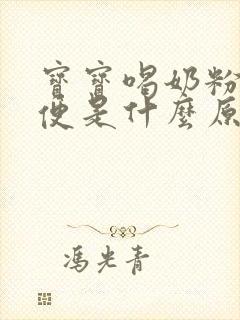 寶寶喝奶粉
便是什麼原
馮光青